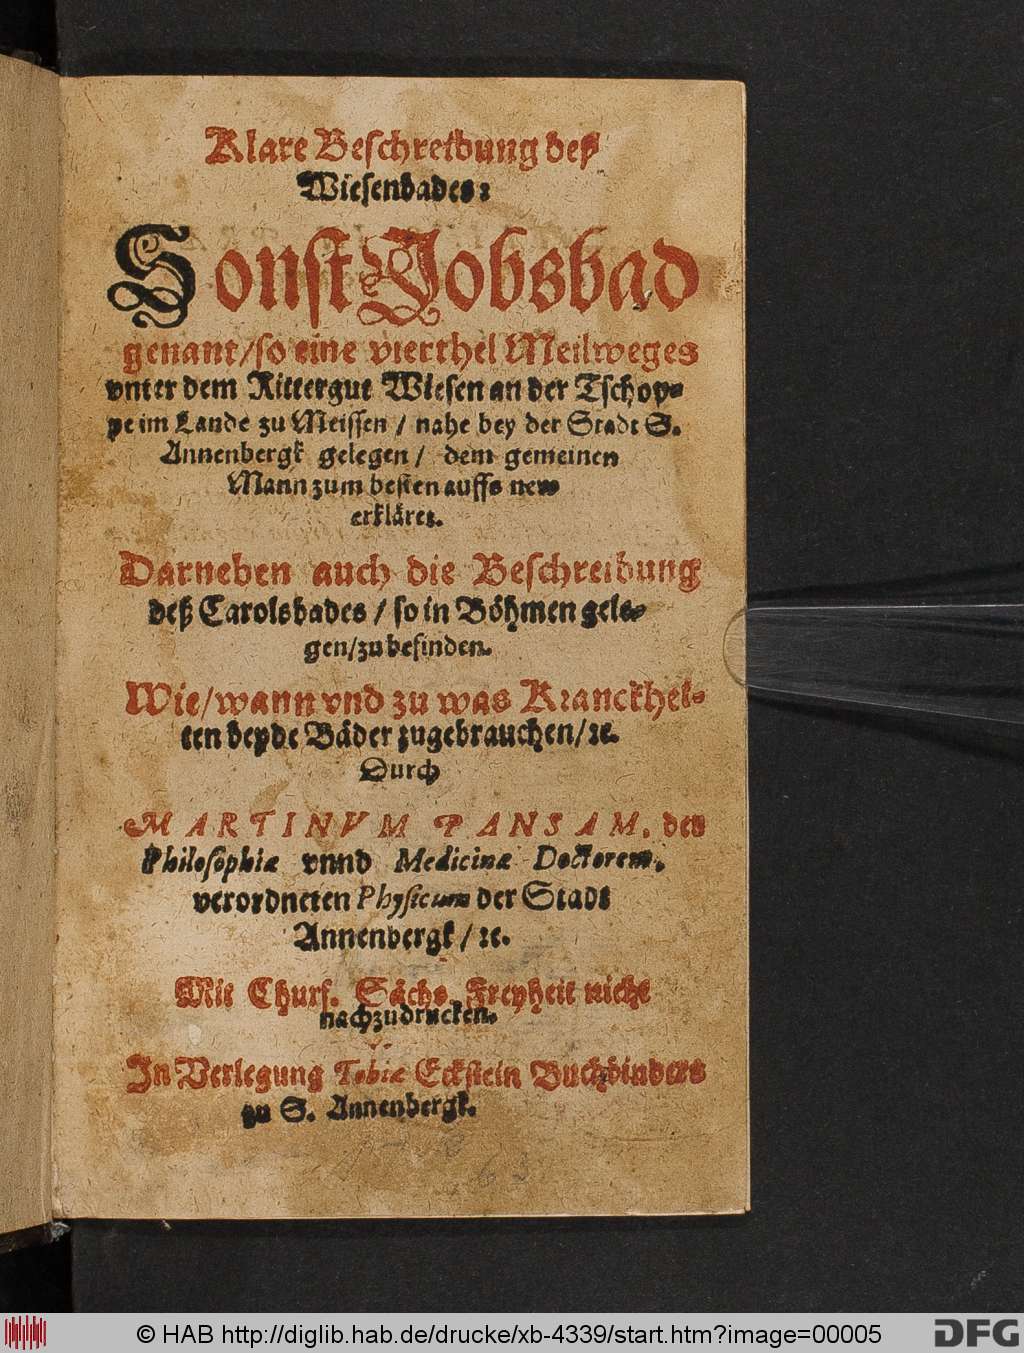 Klare Beschreibung deß
Wiesenbades:
Sonst Jobsbad
genant/so eine vierthel Meilweges
vnter dem Rittergut Wiesen an der Tschop-
pe im Lande zu Meissen / nahe bey der Stadt S.
Annenbergk gelegen / dem gemeinen
Mann zum besten auffs new
erkläret.
Darneben auch die Beschreibung
deß Carolsbades / so in Böhmen gele-
gen/zu befinden.
Wie/wann vnd zu was Kranckhei-
ten beyde Bäder zugebrauchen/ꝛc.
Durch
MARTINVM PANSAM, der
Philosophiæ vnnd Medicinæ Doctorem,
verordneten Physicum der Stadt
Annenbergk / ꝛc.
Mit Churf. Sächs. Freyheit nicht
nachzudrucken.
In Verlegung Tobiæ Eckstein Buchbinders
zu S. Annenbergk.
63
© HAB http://diglib.hab.de/drucke/xb-4339/start.htm?image=00005
DFG